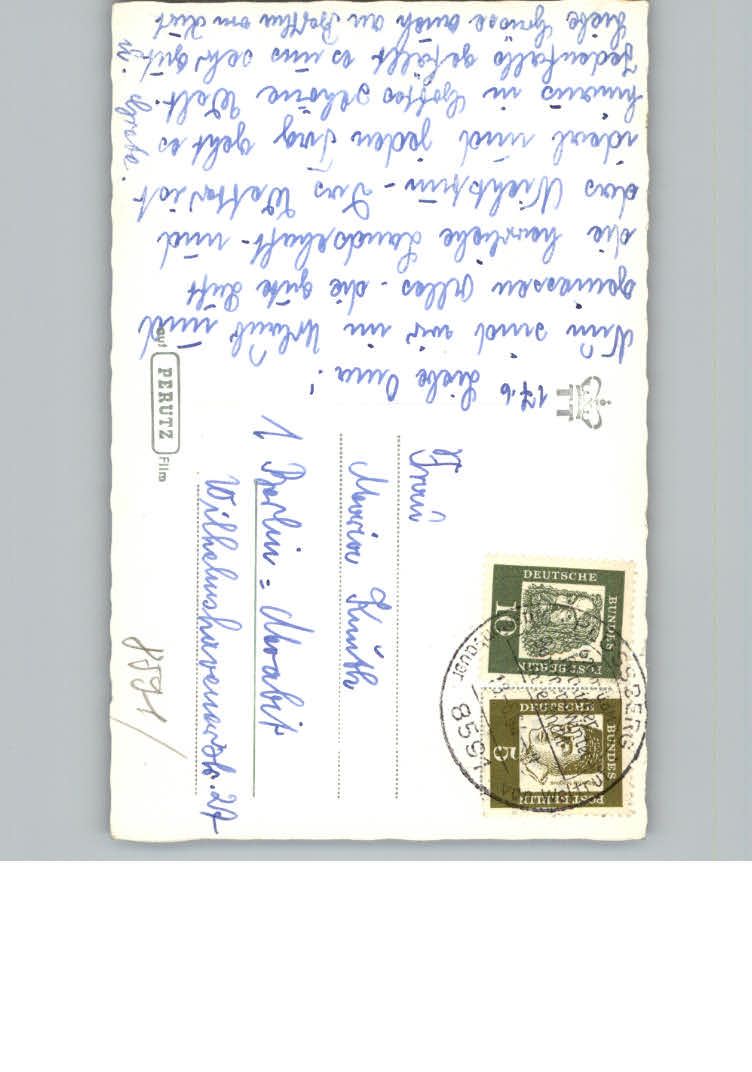 17.6
Liebe Oma!
Nun sind wir im Urlaub und
geniessen Alles - die gute Luft
die herrliche Landschaft - und
das Nichtstun - Das Wetter ist
ideal und jeden Tag geht es
hinaus in Gottes schöne Welt.
Jedenfalls gefällt es uns sehr gut.
Liebe Grüsse auch an
Kurt
u. Grete.
auf
PERUTZ
Film
Frau
Maria Knuth
1 Berlin=Moabit
Wilhelmshavenerstr. 27
8591
DEUTSCHE
BUNDES
POST BERLIN
10
DEUTSCHE
BUNDES
POST BERLIN
5
8591